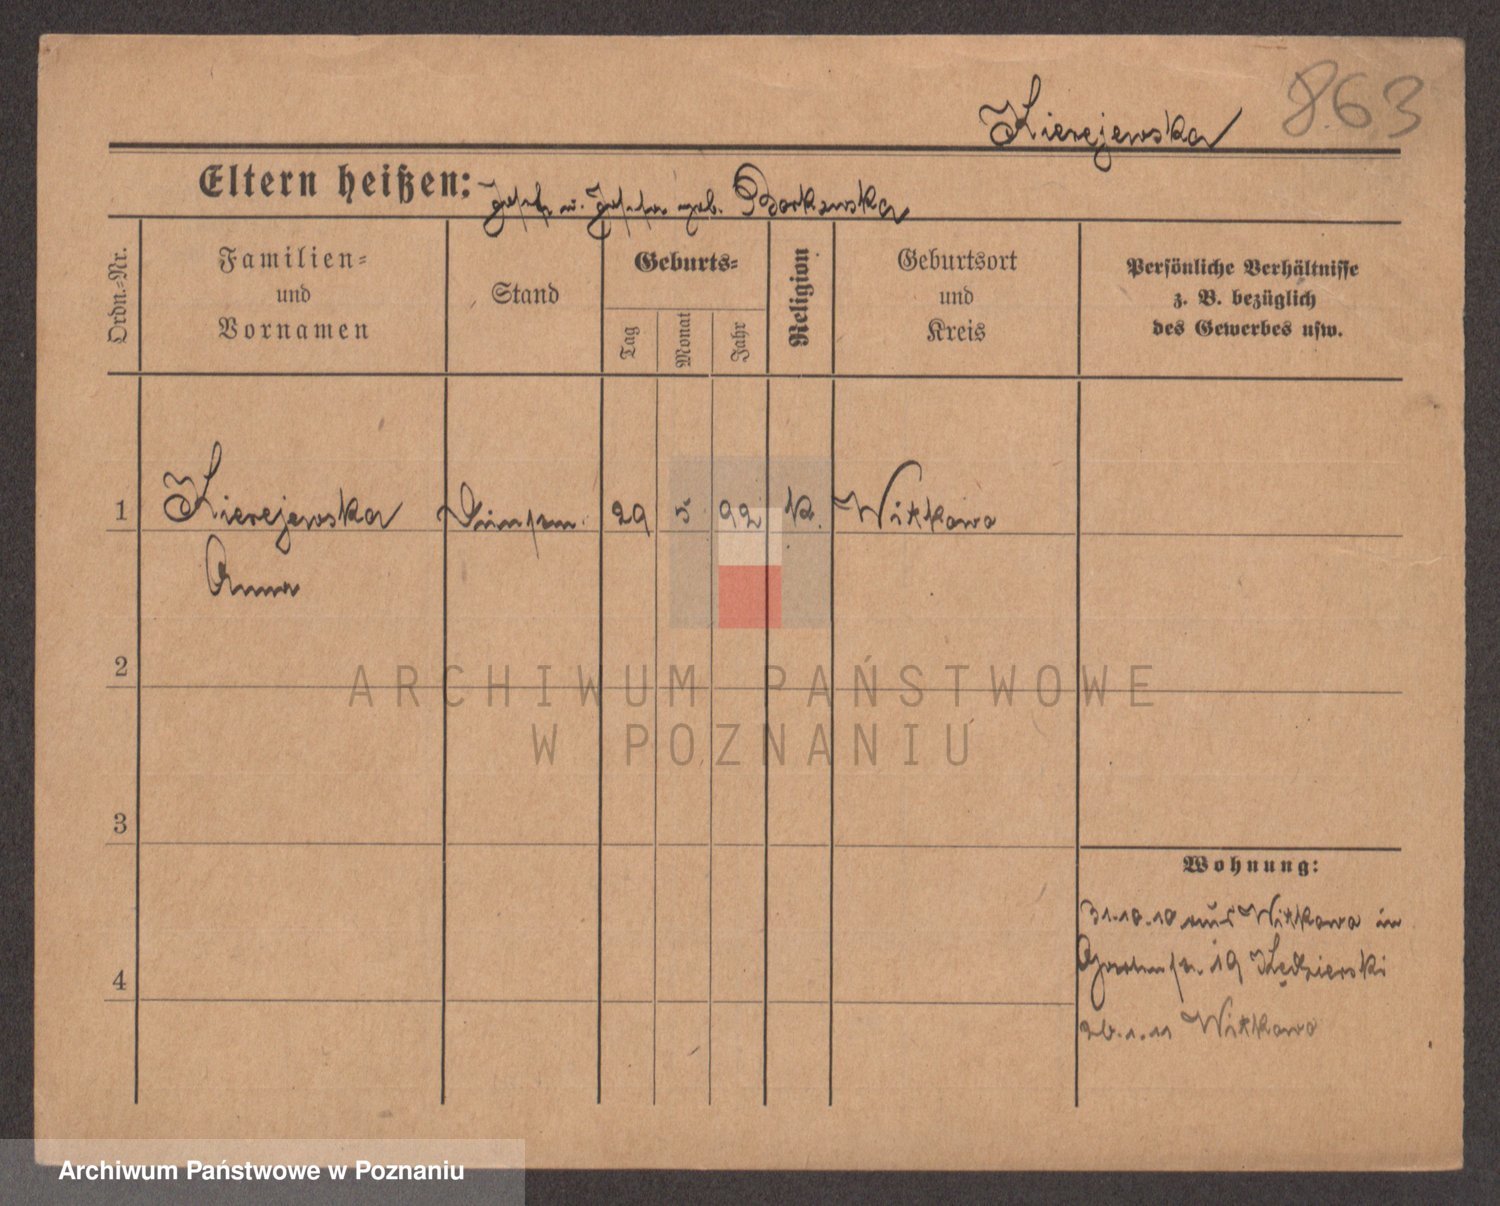 863
Kierejewska
Eltern heißen: Josef u. Josefa geb. Borkowska
Ordn.-Nr.
Familien-
und
Vornamen
Stand
Geburts-
Tag
Monat
Jahr
Religion
Geburtsort
und
Kreis
Persönliche Verhältnisse
z. B. bezüglich
des Gewerbes usw.
1 Kierejewska 29 5. 92 k. Witkowo
Anna
2
ARCHIWUM PAŃSTWOWE
W POZNANIU
3
Wohnung:
31.10.10 aus Witkowo in
19 Kędzierski
4
26.1.11 Witkowo
Archiwum Państwowe w Poznaniu